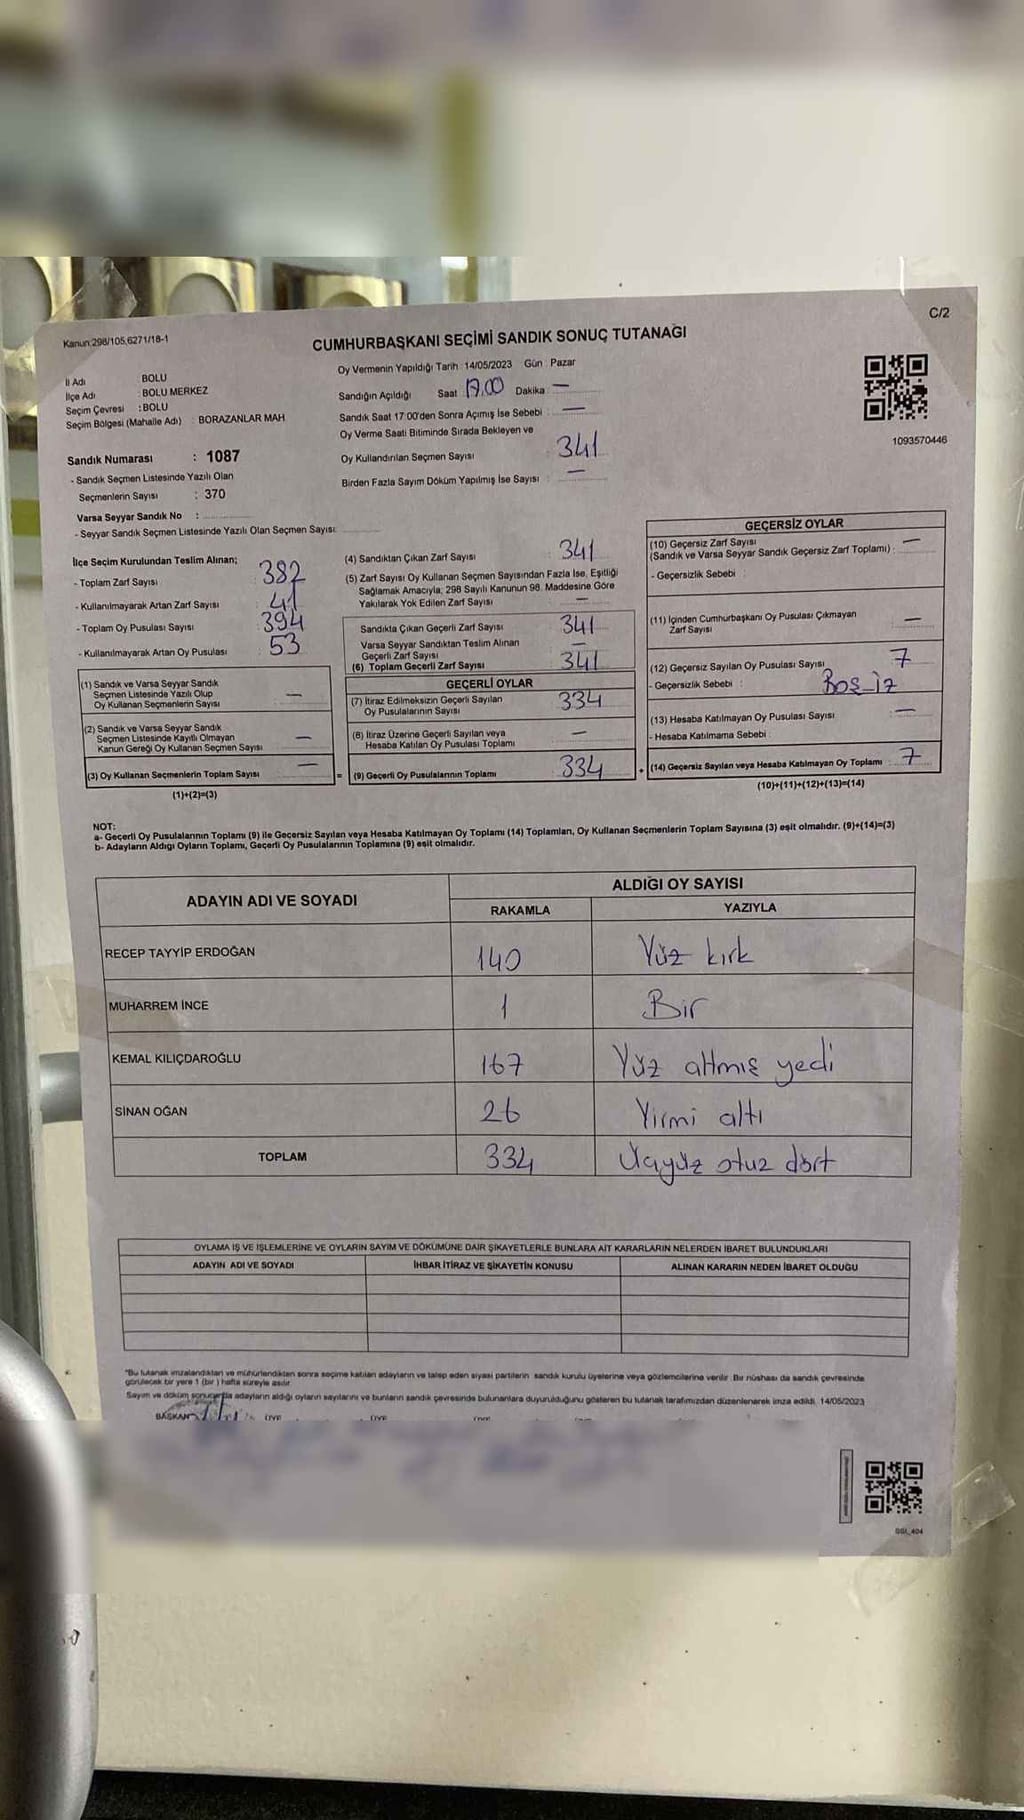 C/2
Kanun:298/105,6271/18-1
CUMHURBAŞKANI SEÇİMİ SANDIK SONUÇ TUTANAĞI
İl Adı BOLU
İlçe Adı : BOLU MERKEZ
Seçim Çevresi : BOLU
Seçim Bölgesi (Mahalle Adı) : BORAZANLAR MAH
Sandık Numarası : 1087
- Sandık Seçmen Listesinde Yazılı Olan
Seçmenlerin Sayısı : 370
Varsa Seyyar Sandık No :
- Seyyar Sandık Seçmen Listesinde Yazılı Olan Seçmen Sayısı:
Oy Vermenin Yapıldığı Tarih : 14/05/2023 Gün : Pazar
Sandığın Açıldığı Saat 17.00 Dakika : —
Sandık Saat 17:00'den Sonra Açımış İse Sebebi : —
Oy Verme Saati Bitiminde Sırada Bekleyen ve
Oy Kullandırılan Seçmen Sayısı : 341
Birden Fazla Sayım Döküm Yapılmış İse Sayısı : —
1093570446
İlçe Seçim Kurulundan Teslim Alınan;
- Toplam Zarf Sayısı : 382
- Kullanılmayarak Artan Zarf Sayısı : 41
- Toplam Oy Pusulası Sayısı : 394
- Kullanılmayarak Artan Oy Pusulası : 53
(1) Sandık ve Varsa Seyyar Sandık
Seçmen Listesinde Yazılı Olup
Oy Kullanan Seçmenlerin Sayısı —
(2) Sandık ve Varsa Seyyar Sandık
Seçmen Listesinde Kayıtlı Olmayan
Kanun Gereği Oy Kullanan Seçmen Sayısı —
(3) Oy Kullanan Seçmenlerin Toplam Sayısı —
(1)+(2)=(3)
(4) Sandıktan Çıkan Zarf Sayısı : 341
(5) Zarf Sayısı Oy Kullanan Seçmen Sayısından Fazla İse, Eşitliği
Sağlamak Amacıyla; 298 Sayılı Kanunun 98. Maddesine Göre
Yakılarak Yok Edilen Zarf Sayısı —
Sandıkta Çıkan Geçerli Zarf Sayısı 341
Varsa Seyyar Sandıktan Teslim Alınan
Geçerli Zarf Sayısı —
(6) Toplam Geçerli Zarf Sayısı 341
GEÇERLİ OYLAR
(7) İtiraz Edilmeksizin Geçerli Sayılan
Oy Pusulalarının Sayısı 334
(8) İtiraz Üzerine Geçerli Sayılan veya
Hesaba Katılan Oy Pusulası Toplamı —
= (9) Geçerli Oy Pusulalarının Toplamı 334 +
GEÇERSİZ OYLAR
(10) Geçersiz Zarf Sayısı —
(Sandık ve Varsa Seyyar Sandık Geçersiz Zarf Toplamı) :
- Geçersizlik Sebebi :
(11) İçinden Cumhurbaşkanı Oy Pusulası Çıkmayan
Zarf Sayısı —
(12) Geçersiz Sayılan Oy Pusulası Sayısı 7
- Geçersizlik Sebebi :
(13) Hesaba Katılmayan Oy Pusulası Sayısı —
- Hesaba Katılmama Sebebi :
(14) Geçersiz Sayılan veya Hesaba Katılmayan Oy Toplamı : 7
(10)+(11)+(12)+(13)=(14)
NOT:
a- Geçerli Oy Pusulalarının Toplamı (9) ile Geçersiz Sayılan veya Hesaba Katılmayan Oy Toplamı (14) Toplamları, Oy Kullanan Seçmenlerin Toplam Sayısına (3) eşit olmalıdır. (9)+(14)=(3)
b- Adayların Aldığı Oyların Toplamı, Geçerli Oy Pusulalarının Toplamına (9) eşit olmalıdır.
ADAYIN ADI VE SOYADI ALDIĞI OY SAYISI
RAKAMLA YAZIYLA
RECEP TAYYİP ERDOĞAN 140 Yüz kırk
MUHARREM İNCE 1 Bir
KEMAL KILIÇDAROĞLU 167 Yüz altmış yedi
SİNAN OĞAN 26 Yirmi altı
TOPLAM 334 Üçyüz otuz dört
OYLAMA İŞ VE İŞLEMLERİNE VE OYLARIN SAYIM VE DÖKÜMÜNE DAİR ŞİKAYETLERLE BUNLARA AİT KARARLARIN NELERDEN İBARET BULUNDUKLARI
ADAYIN ADI VE SOYADI İHBAR İTİRAZ VE ŞİKAYETİN KONUSU ALINAN KARARIN NEDEN İBARET OLDUĞU
*Bu tutanak imzalandıktan ve mühürlendikten sonra seçime katılan adayların ve talep eden siyasi partilerin sandık kurulu üyelerine veya gözlemcilerine verilir. Bir nüshası da sandık çevresinde
görülecek bir yere 1 (bir) hafta süreyle asılır.
Sayım ve döküm sonucunda adayların aldığı oyların sayılarını ve bunların sandık çevresinde bulunanlara duyurulduğunu gösteren bu tutanak tarafımızdan düzenlenerek imza edildi. 14/05/2023
BAŞKAN ÜYE ÜYE
GGI_404